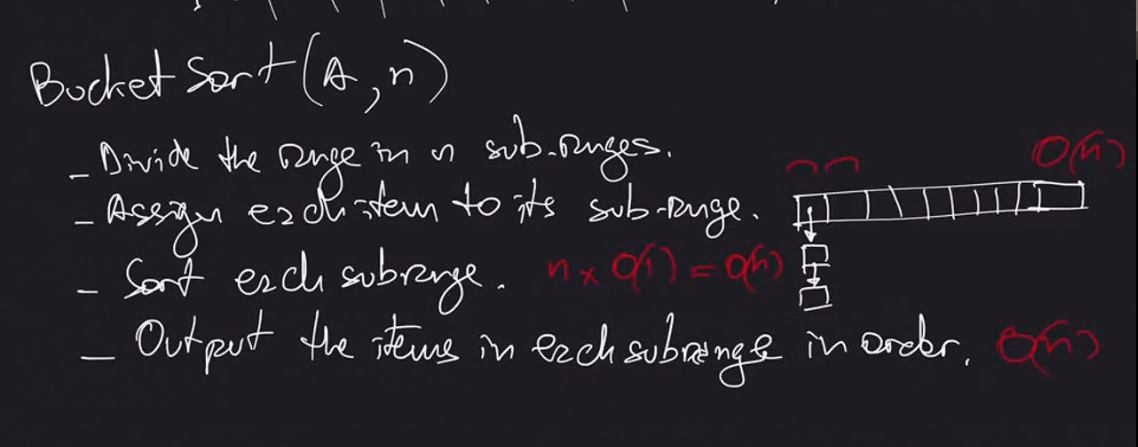 Bucket Sort (A, n)
- Divide the range in n sub-ranges.
O(n)
- Assign each item to its sub-range.
- Sort each subrange. n × O(1) = O(n)
- Output the items in each subrange in order. O(n)